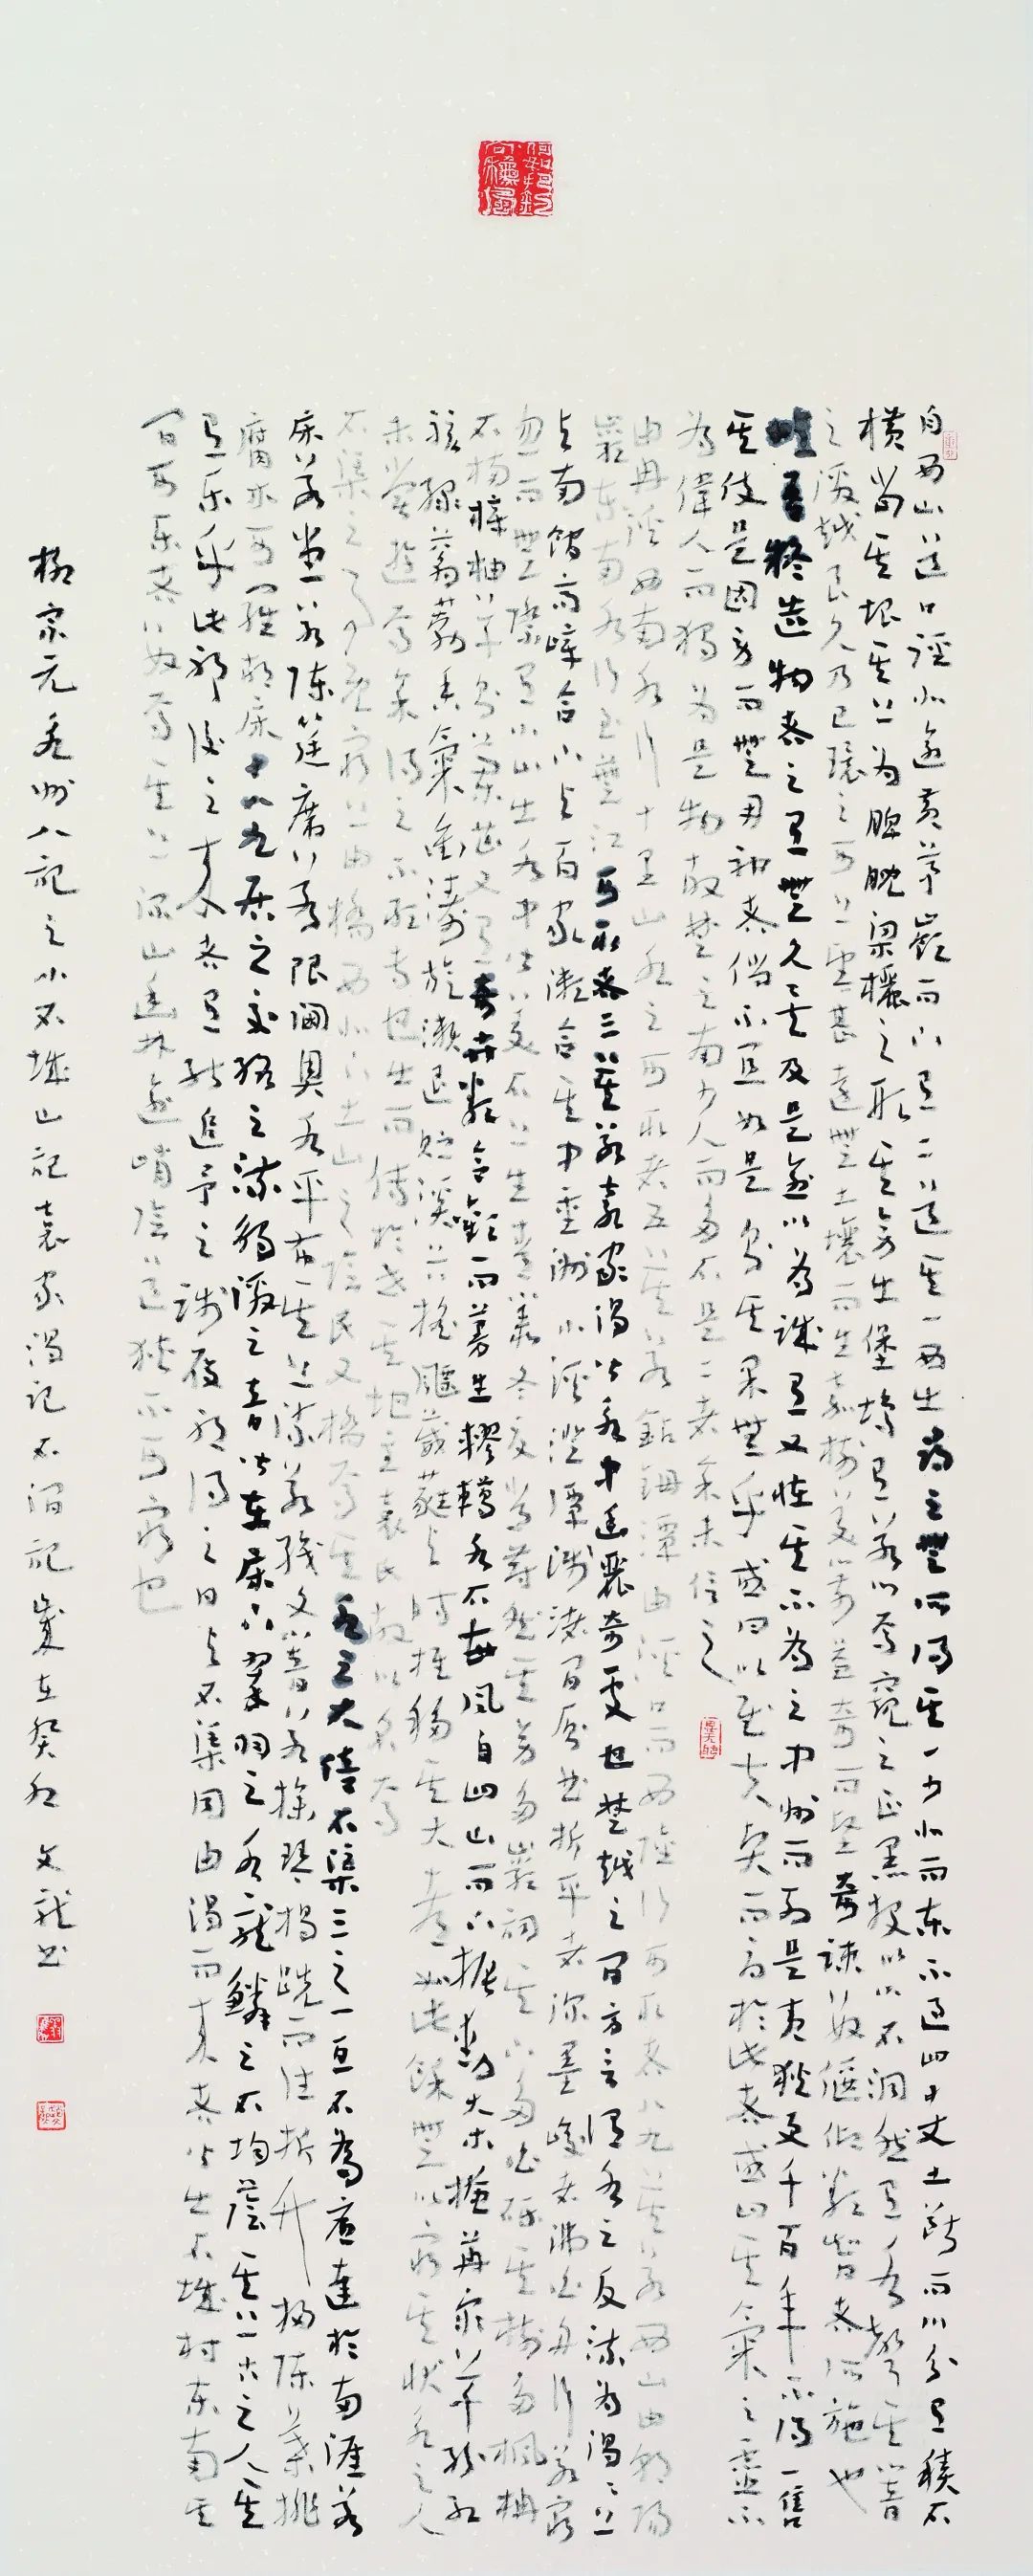 自西山道口徑北踰黃茅嶺而下有二道其一西出尋之無所得其一少北而東不過四十丈土斷而川分有積石
橫當其垠其上為睥睨梁欐之形其旁出堡塢有若門焉窺之正黑投以小石洞然有水聲其響
之激越良久乃已環之可上望甚遠無土壤而生嘉樹美箭益奇而堅其疎數偃仰類智者所施也
噫吾疑造物者之有無久矣及是愈以為誠有又怪其不為之中州而列是夷狄更千百年不得一售
其伎是固勞而無用神者儻不宜如是則其果無乎或曰以慰夫賢而辱於此者或曰其氣之靈不
為偉人而獨為是物故楚之南少人而多石是二者余未信之
由冉溪西南水行十里山水之可取者五莫若鈷鉧潭由溪口而西陸行可取者八九莫若西山由朝陽
巖東南水行至蕪江可取者三莫若袁家渴皆永中幽麗奇處也楚越之間方言謂水之反流為渴渴上
與南館高嶂合下與百家瀨合其中重洲小溪澄潭淺渚間廁曲折平者深墨峻者沸白舟行若窮
忽而無際有小山出水中皆美石上生青叢冬夏常蔚然其旁多巖洞其下多白礫其樹多楓柟
石楠樟柚草則蘭芷又有異卉類合歡而蔓生轇轕水石每風自四山而下振動大木掩苒眾草紛紅
駭綠蓊葧香氣衝濤旋瀨退貯谿谷搖颺葳蕤與時推移其大都如此餘無以窮其狀永之人
未嘗遊焉余得之不敢專也出而傳於世其地主袁氏故以名焉
石渠之事既窮上由橋西北下土山之陰民又橋焉其水之大倍石渠三之一亘石為底達於兩涯若
床若堂若陳筵席若限閫奧水平布其上流若織文響若操琴揭跣而往折竹掃陳葉排
腐木可羅胡床十八九居之交絡之流觸激之音皆在床下翠羽之木龍鱗之石均蔭其上古之人其
有樂乎此耶後之來者有能追予之踐履耶得之日與石渠同由渴而來者皆出石城村東南其
間可樂者數焉其上深山幽林逾峭險道狹不可窮也
柳宗元永州八記之小石城山記袁家渴記石澗記歲在癸卯 文龍書